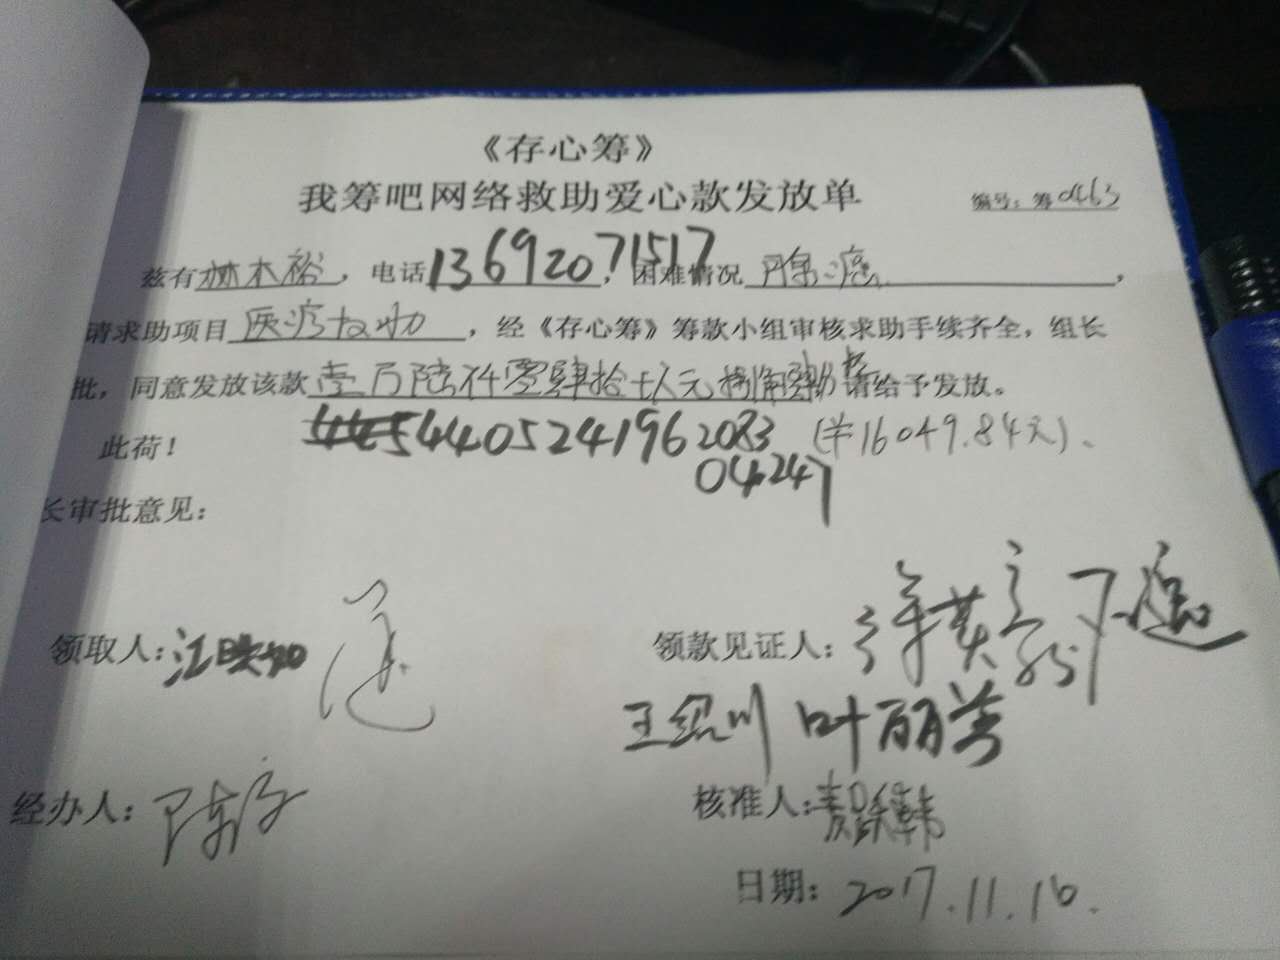 《存心筹》
我筹吧网络救助爱心款发放单
编号：筹0463
兹有林木裕，电话13692071517，困难情况
请求助项目医疗救助，经《存心筹》筹款小组审核求助手续齐全，组长
批，同意发放该款壹万陆仟零肆拾玖元捌角肆分整请给予发放。
此荷！ 440524196208304247 (¥16049.84元)、
长审批意见：
领取人：江映如 领款见证人：
王绍川 叶丽
经办人：陈 核准人：
日期：2017.11.16.